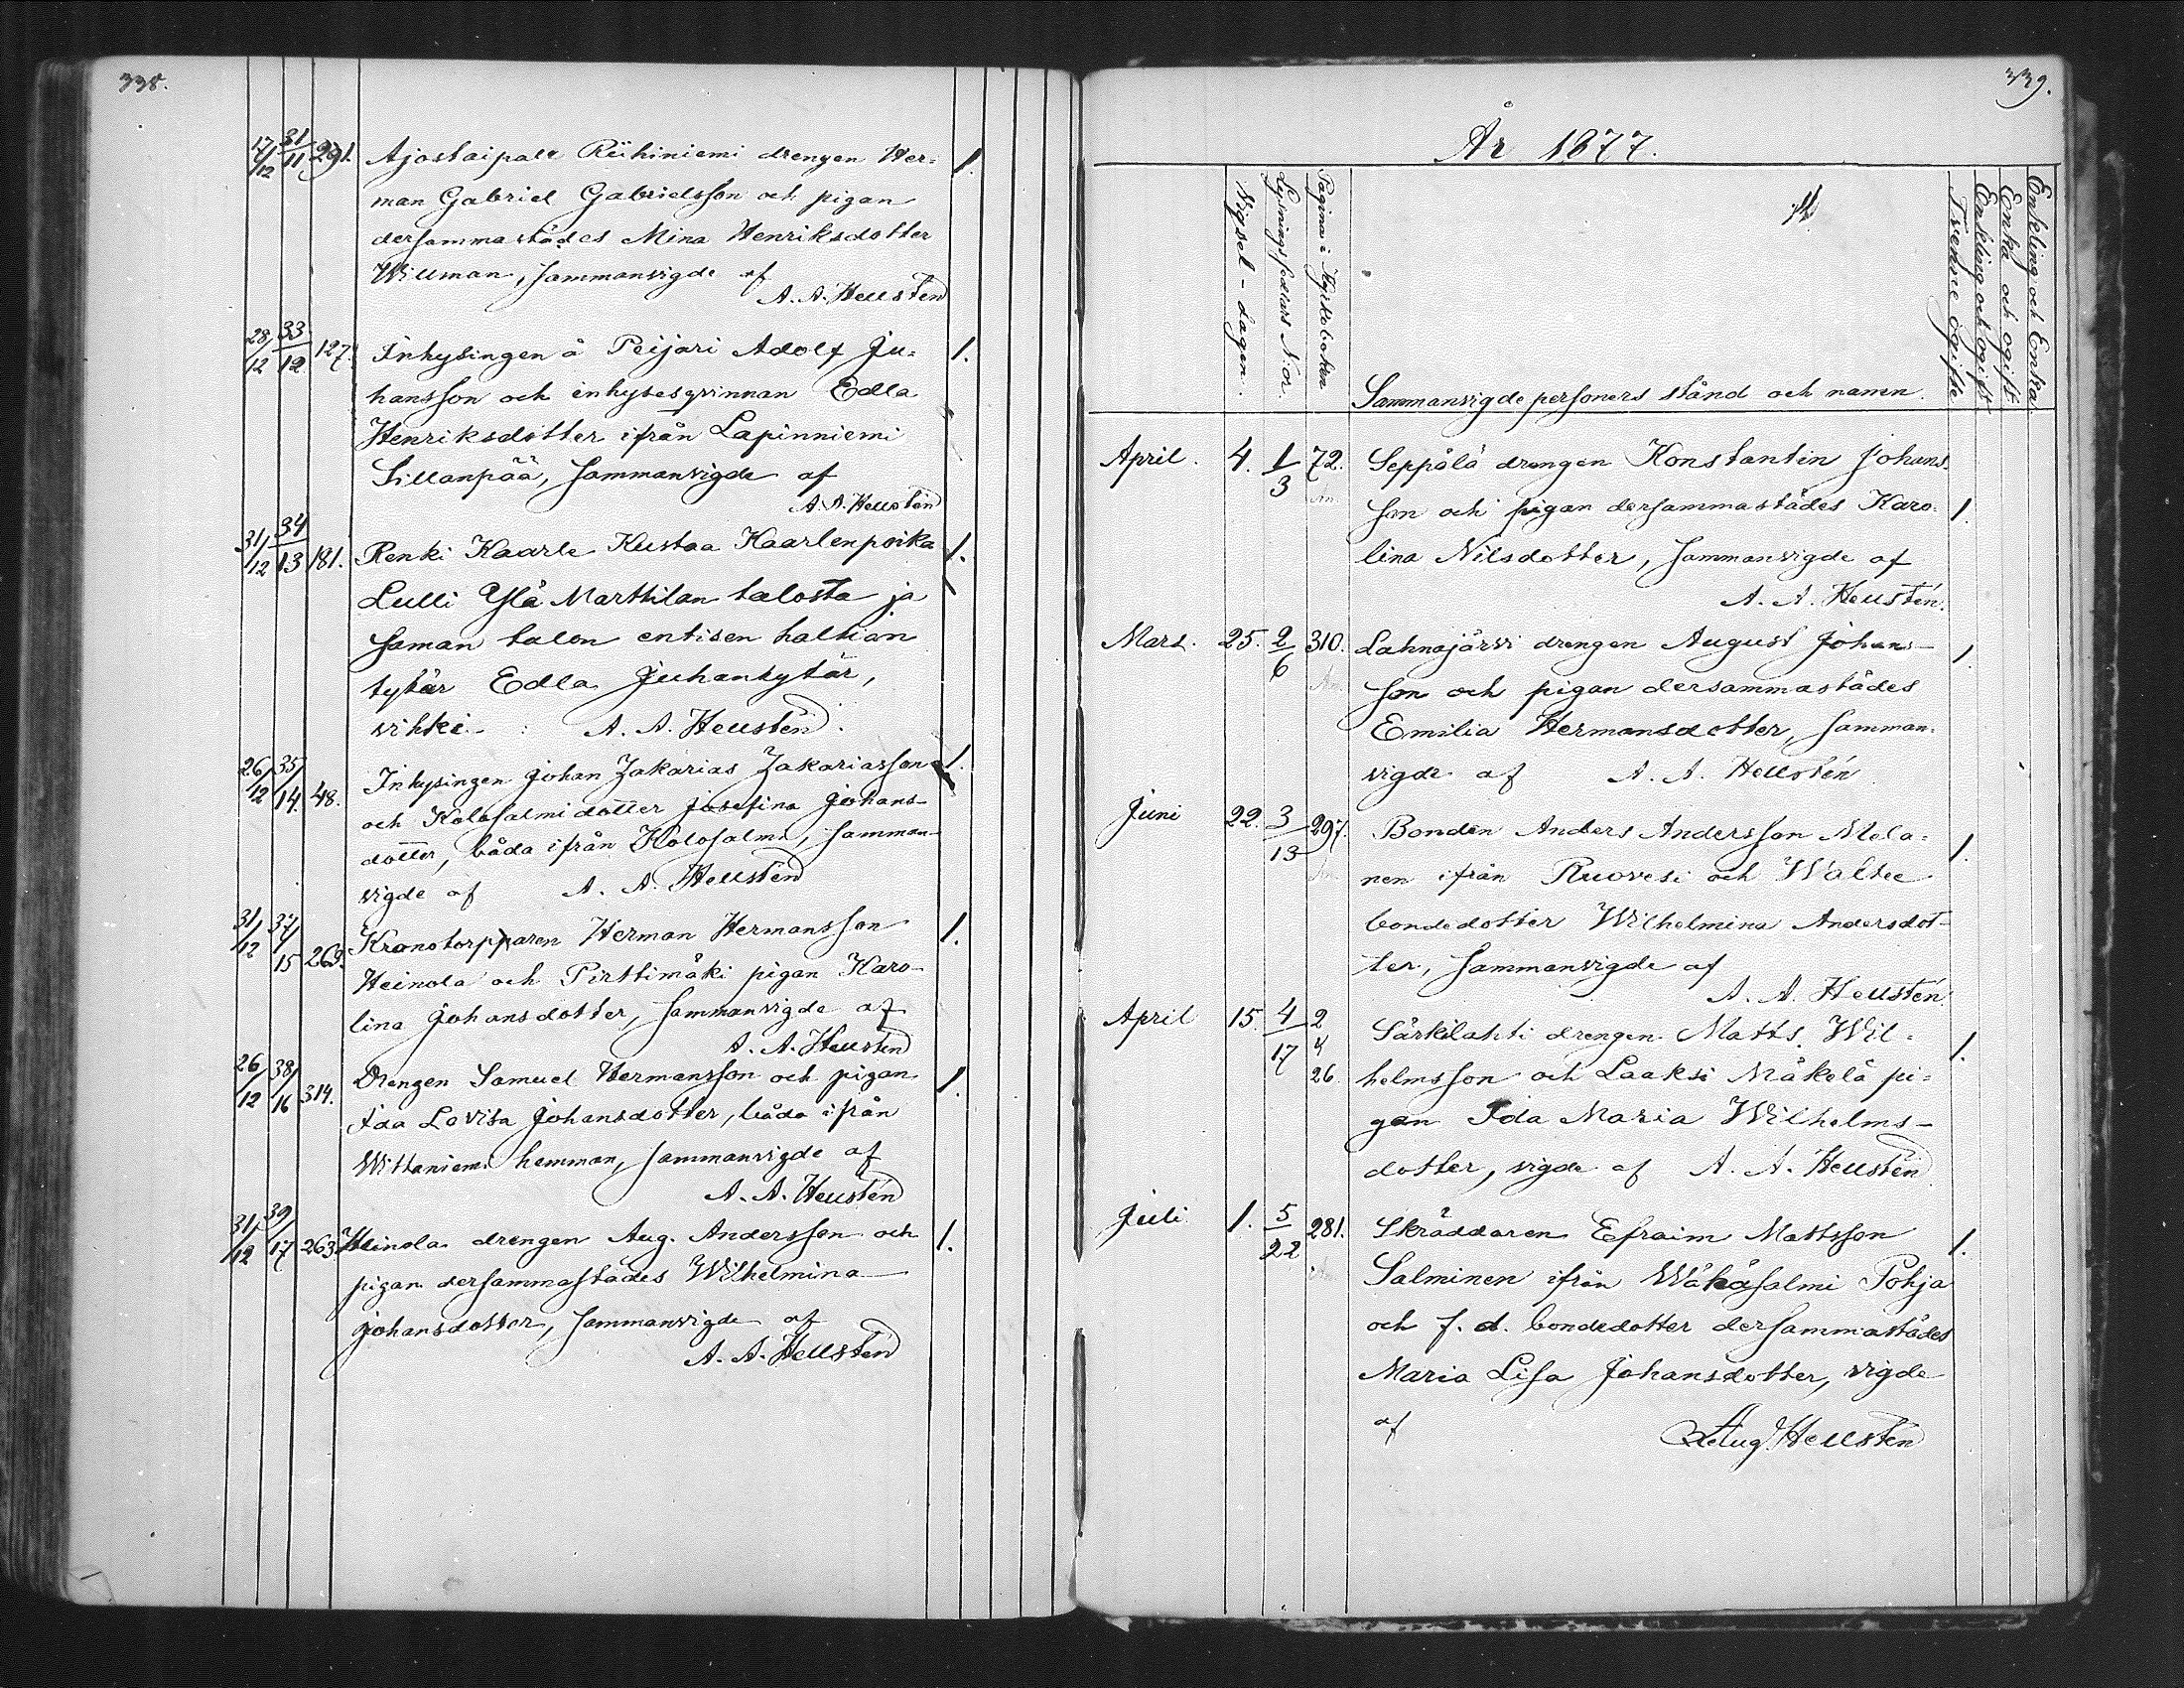 338.
17/12 31/11 291. Ajostaipale Riihiniemi drengen Her= 1.
man Gabriel Gabrielsson och pigan
dersammastädes Mina Henriksdotter
Willman, sammanvigde af
A. A. Hellstén
28/12 33/12 127. Inhysingen å Peijari Adolf Ju= 1.
hansson och inhysesqvinnan Edla
Henriksdotter ifrån Lapinniemi
Sillanpää, sammanvigde af
A. A. Hellstén
31/12 34/13 181. Renki Kaarle Kustaa Kaarlenpoika 1.
Lulli Ylä Marttilan talosta ja
saman talon entisen haltian
tytär Edla Juhantytär,
vihki : A. A. Hellstén.
26/12 35/14. 48. Inhysingen Johan Zakarias Zakariasson 1.
och Kolosalmi dotter Josefina Johans-
dotter, båda ifrån Kolosalmi, samman-
vigde af A. A. Hellstén
31/12 37/15 263. Kronotorpparen Herman Hermansson 1.
Heinola och Pirttimäki pigan Karo-
lina Johansdotter, sammanvigde af
A. A. Hellstén
26/12 38/16 314. Drengen Samuel Hermansson och pigan 1.
Ida Lovisa Johansdotter, båda ifrån
Wittaniemi hemman, sammanvigde af
A. A. Hellstén
31/12 39/17 263. Heinola drengen Aug. Andersson och 1.
pigan dersammastädes Wilhelmina
Johansdotter, sammanvigde af
A. A. Hellstén
339.
År 1877.
Vigsel-dagen.
Lysningssedlars N:or.
Pagina i Kyrkoboken
Sammanvigde personers stånd och namn.
Tvenne ogifte
Enkling och ogift
Enka och ogift
Enkling och Enka
April. 4. 1/3 72. Seppälä drengen Konstantin Johans-
son och pigan dersammastädes Karo- 1.
lina Nilsdotter, sammanvigde af
A. A. Hellstén.
Mars. 25. 2/6 310. Lahnajärvi drengen August Johans- 1.
son och pigan dersammastädes
Emilia Hermansdotter, samman-
vigde af A. A. Hellstén
Juni 22. 3/13 297. Bonden Anders Andersson Mela= 1.
nen ifrån Ruovesi och Waltee
bondedotter Wilhelmina Andersdot-
ter, sammanvigde af
A. A. Hellstén
April 15. 4/17 2 & 26. Särkilahti drengen Matts Wil- 1.
helmsson och Laaksi Mäkelä pi=
gan Ida Maria Wilhelms-
dotter, vigde af A. A. Hellstén
Juli 1. 5/22 281. Skräddaren Efraim Mattsson 1.
Salminen ifrån Wäkäsalmi Pohja
och f. d. bondedotter dersammastädes
Maria Lisa Johansdotter, vigde
af Aug. Hellstén